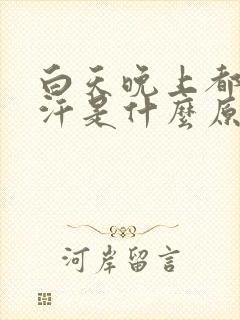 白天晚上都
汗是什麼原
河岸留言